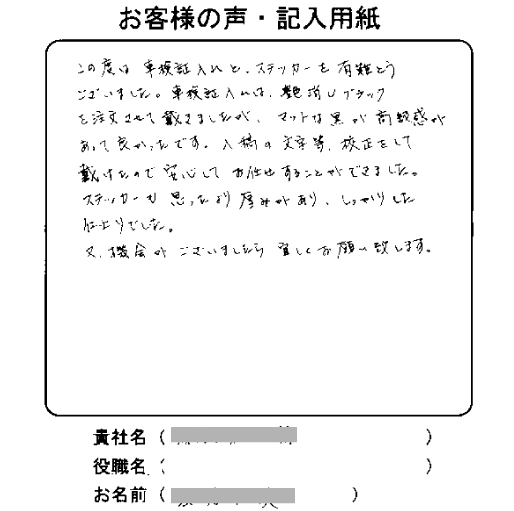 お客様の声・記入用紙
この度は車検証入れと、ステッカーを有難とう
ございました。車検証入れは、艶消しブラック
を注文させて戴きましたが、マットな黒が高級感が
あって良かったです。入稿の文字等、校正をして
戴けたので安心してお任せすることができました。
ステッカーも思ったより厚みがあり、しっかりした
仕上りでした。
又、機会がございましたら宜しくお願い致します。
貴社名（ ）
役職名（ ）
お名前（ ）